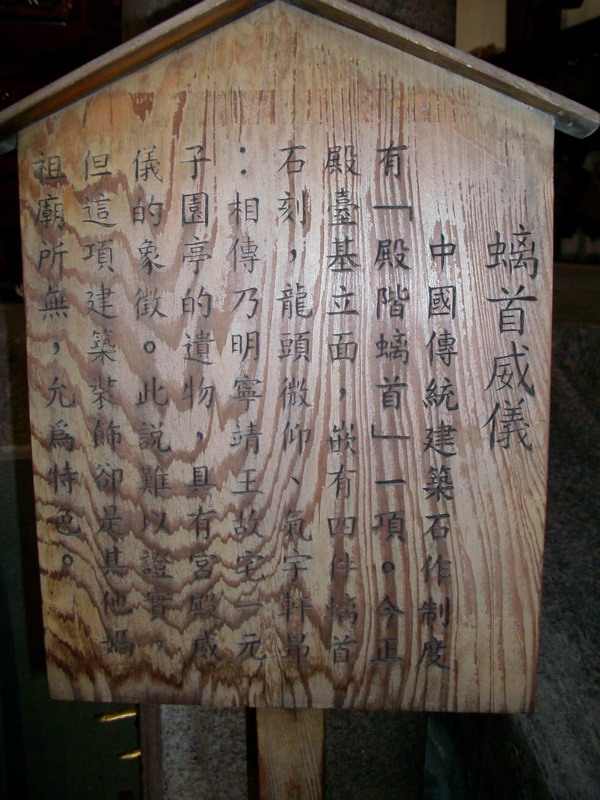 螭首威儀
中國傳統建築石作制度
有「殿階螭首」一項。今正
殿臺基立面，嵌有四件螭首
石刻，龍頭微仰、氣宇軒昂
：相傳乃明寧靖王故宅一元
子園亭的遺物，具有宮殿威
儀的象徵。此説難以證實，
但這項建築裝飾卻是其他媽
祖廟所無，允爲特色。